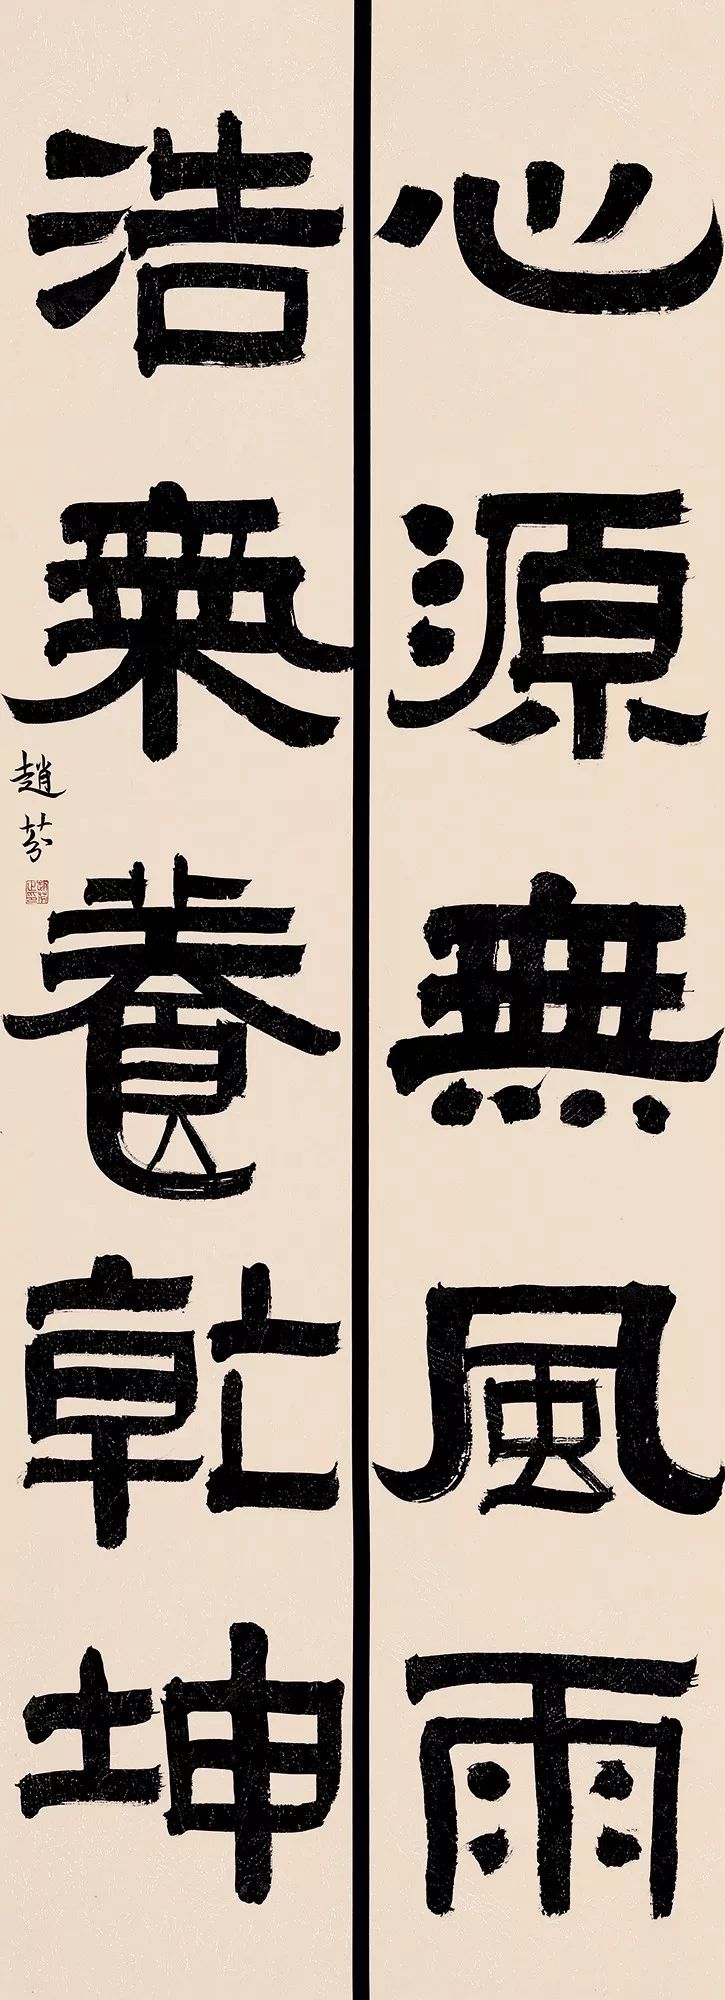 心源無風雨
浩氣養乾坤
趙芬